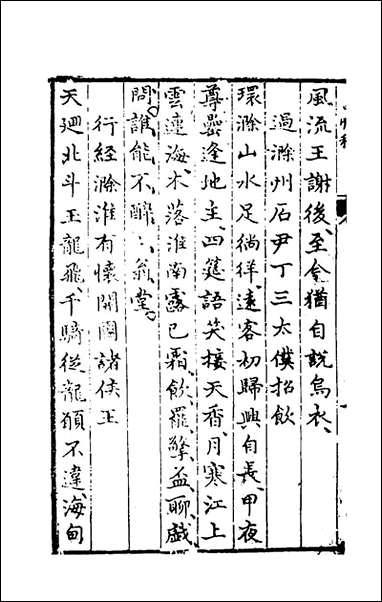 風流王謝後至今猶自說烏衣
過滁州石尹丁三太僕招飲
環滁山水足徜徉遠客初歸興自長甲夜
尊罍逢地主四筵語笑接天香月寒江上
雲連海木落淮南露已霜飲罷擎盃聊戲
問誰能不醉〻翁堂
行經滁淮有懷開國諸侯王
天廻北斗玉龍飛千騎從龍願不違海甸